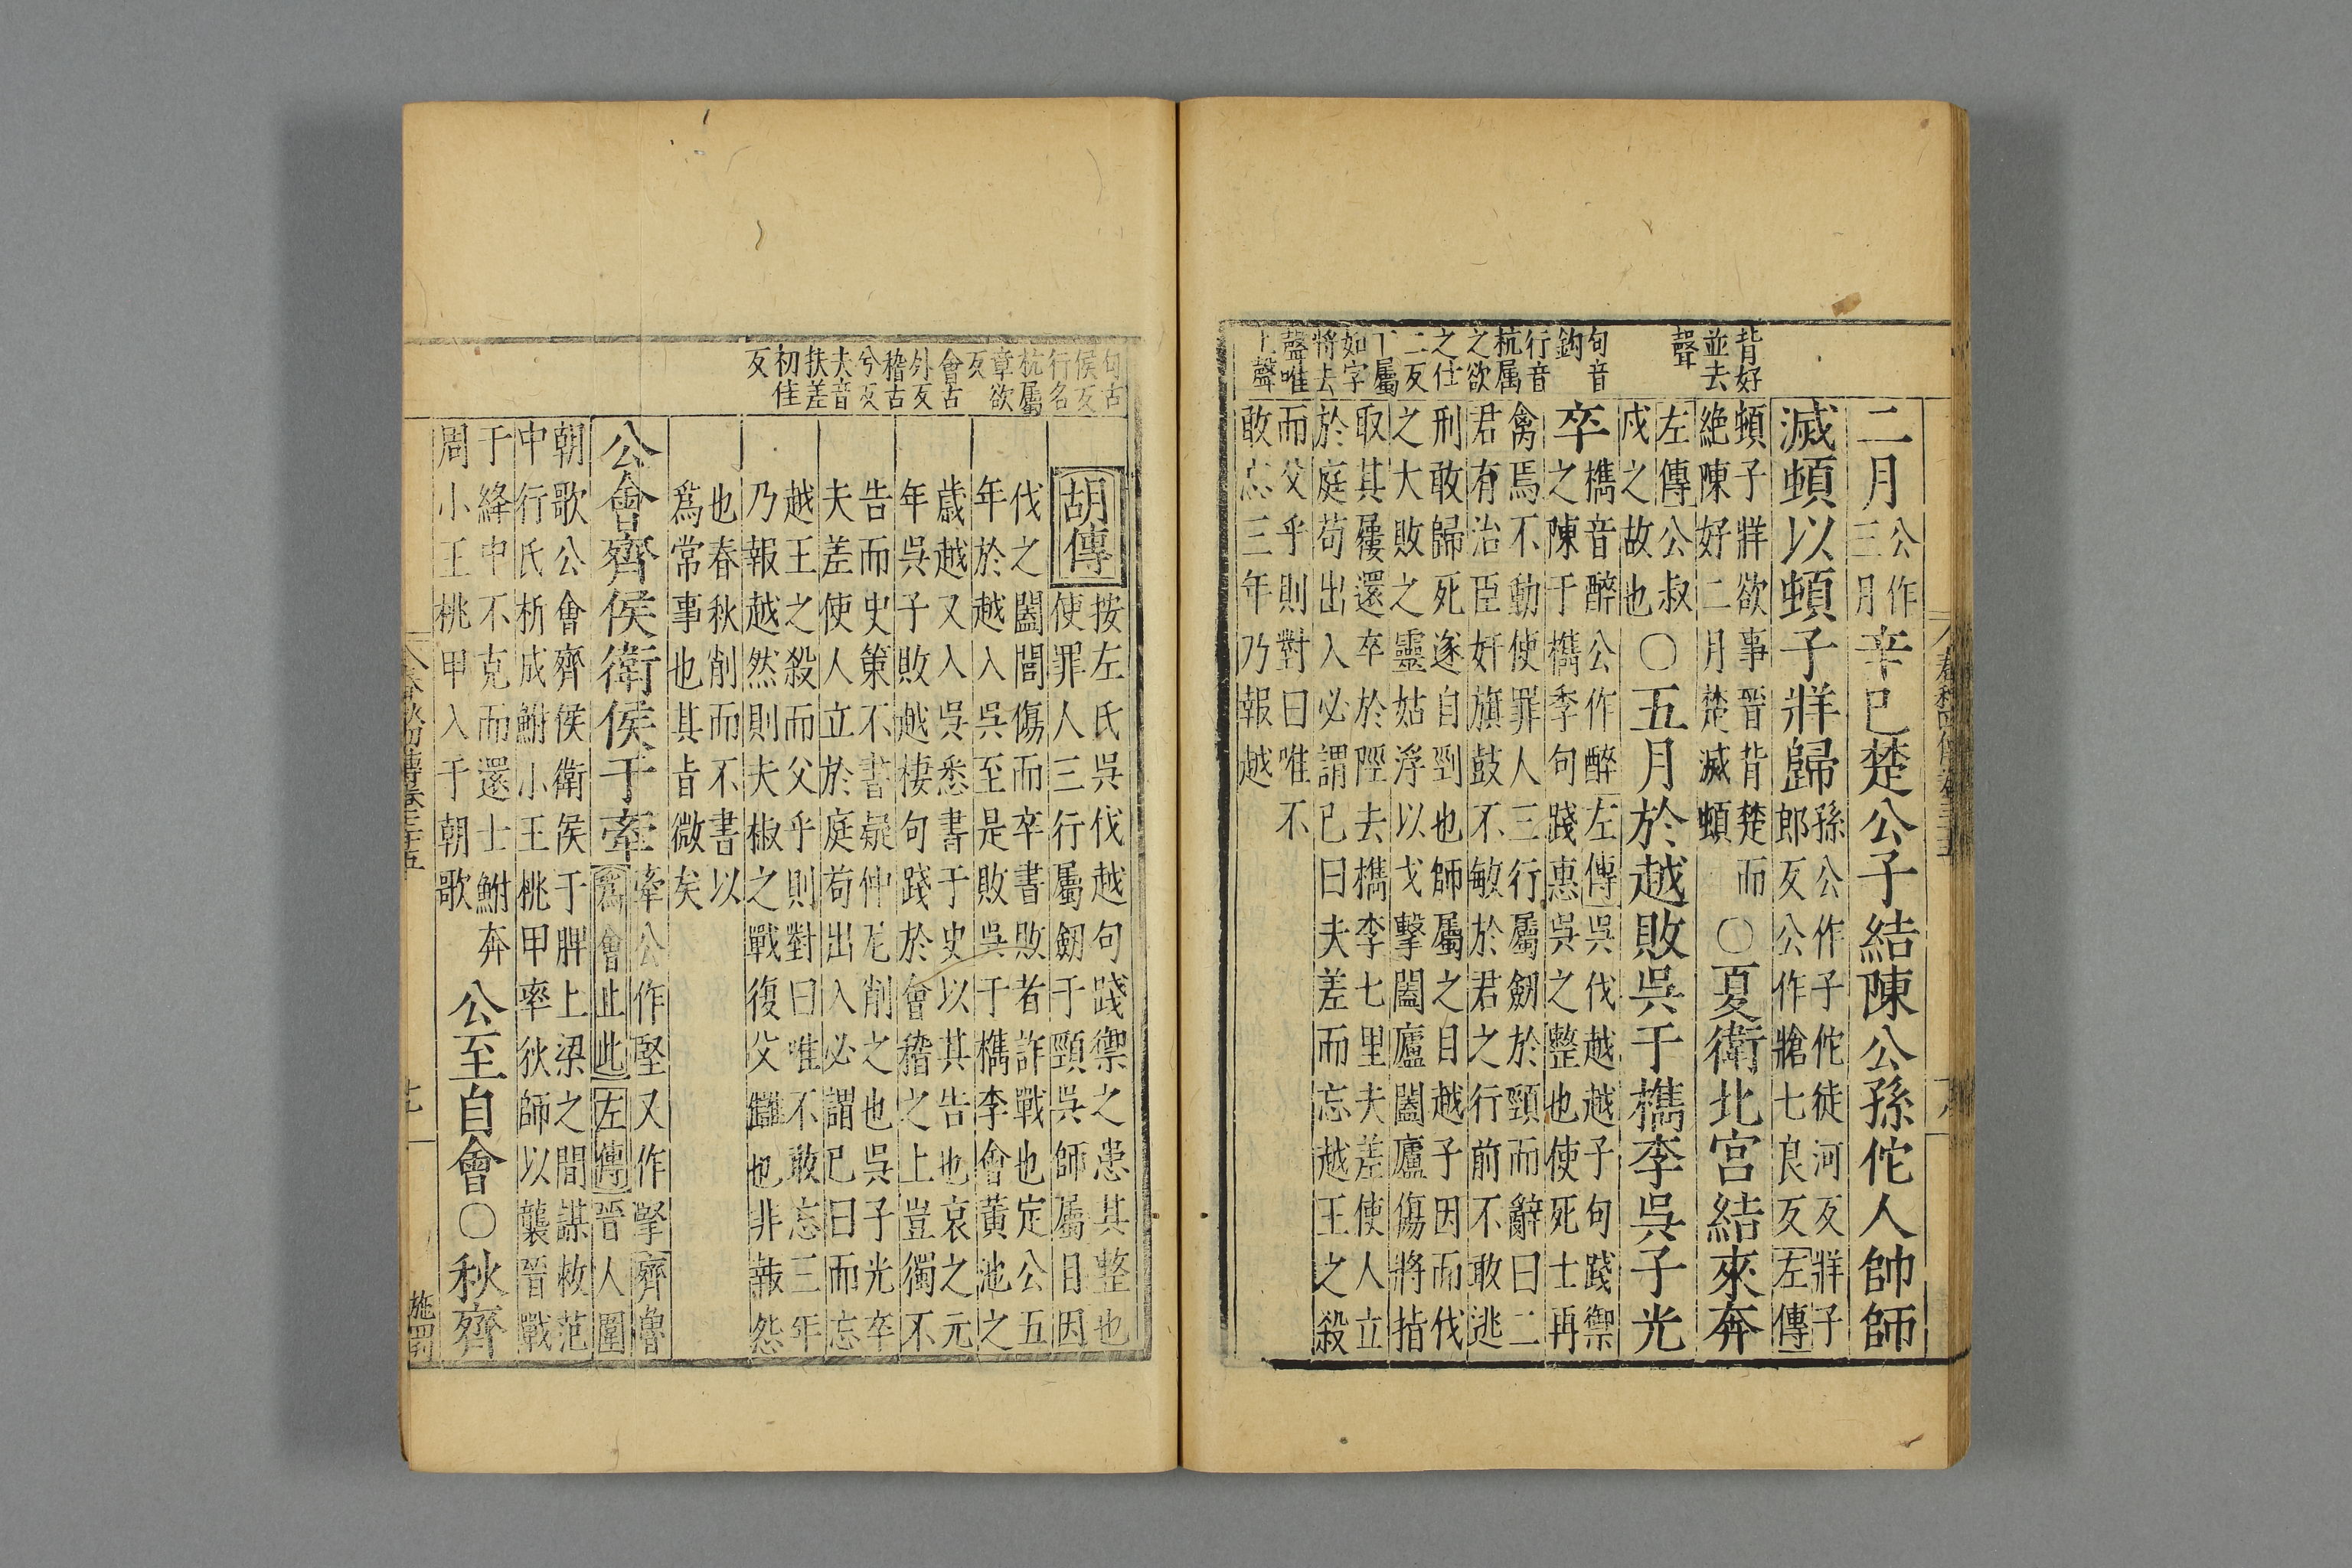 背好
並去
聲
句音
鈎
行音
杭属
之欲
之仕
二反
下屬
如字
將去
聲唯
上聲
二月
公作
三月
辛巳楚公子結陳公孫佗人帥師
滅頓以頓子牂歸
孫公作子佗徒河反牂子
郎反公作牄七良反左傳
頓子牂欲事晉背楚而
絶陳好二月楚滅頓
○夏衛北宮結來奔
左傳公叔
戍之故也
○五月於越敗吳于檇李吳子光
卒
檇音醉公作醉左傳吳伐越越子句踐禦
之陳于檇李句踐患吳之整也使死士再
禽焉不動使罪人三行屬劒於頸而辭曰二
君有治臣奸旗鼓不敏於君之行前不敢逃
刑敢歸死遂自剄也師屬之目越子因而伐
之大敗之靈姑浮以戈擊闔廬闔廬傷將指
取其屨還卒於陘去檇李七里夫差使人立
於庭苟出入必謂已曰夫差而忘越王之殺
而父乎則對曰唯不
敢忘三年乃報越
句古
侯反
行名
杭屬
章欲
反
會古
外反
稽古
兮反
夫音
扶差
初佳
反
胡傳
按左氏吳伐越句踐禦之患其整也
使罪人三行屬劒于頸吳師屬目因
伐之闔閭傷而卒書敗者詐戰也定公五
年於越入吳至是敗吳于檇李會黃池之
歲越又入吳悉書于史以其告也哀之元
年吳子敗越棲句踐於會稽之上豈獨不
告而史策不書疑仲尼削之也吳子光卒
夫差使人立於庭苟出入必謂已曰而忘
越王之殺而父乎則對曰唯不敢忘三年
乃報越然則夫椒之戰復父讎也非報怨
也春秋削而不書以
爲常事也其旨微矣
公會齊侯衛侯于牽
牽公作堅又作掔齊魯
爲會止此左傳晉人圍
朝歌公會齊侯衛侯于脾上梁之間謀救范
中行氏析成鮒小王桃甲率狄師以襲晉戰
于絳中不克而還士鮒奔
周小王桃甲入于朝歌
公至自會○秋齊